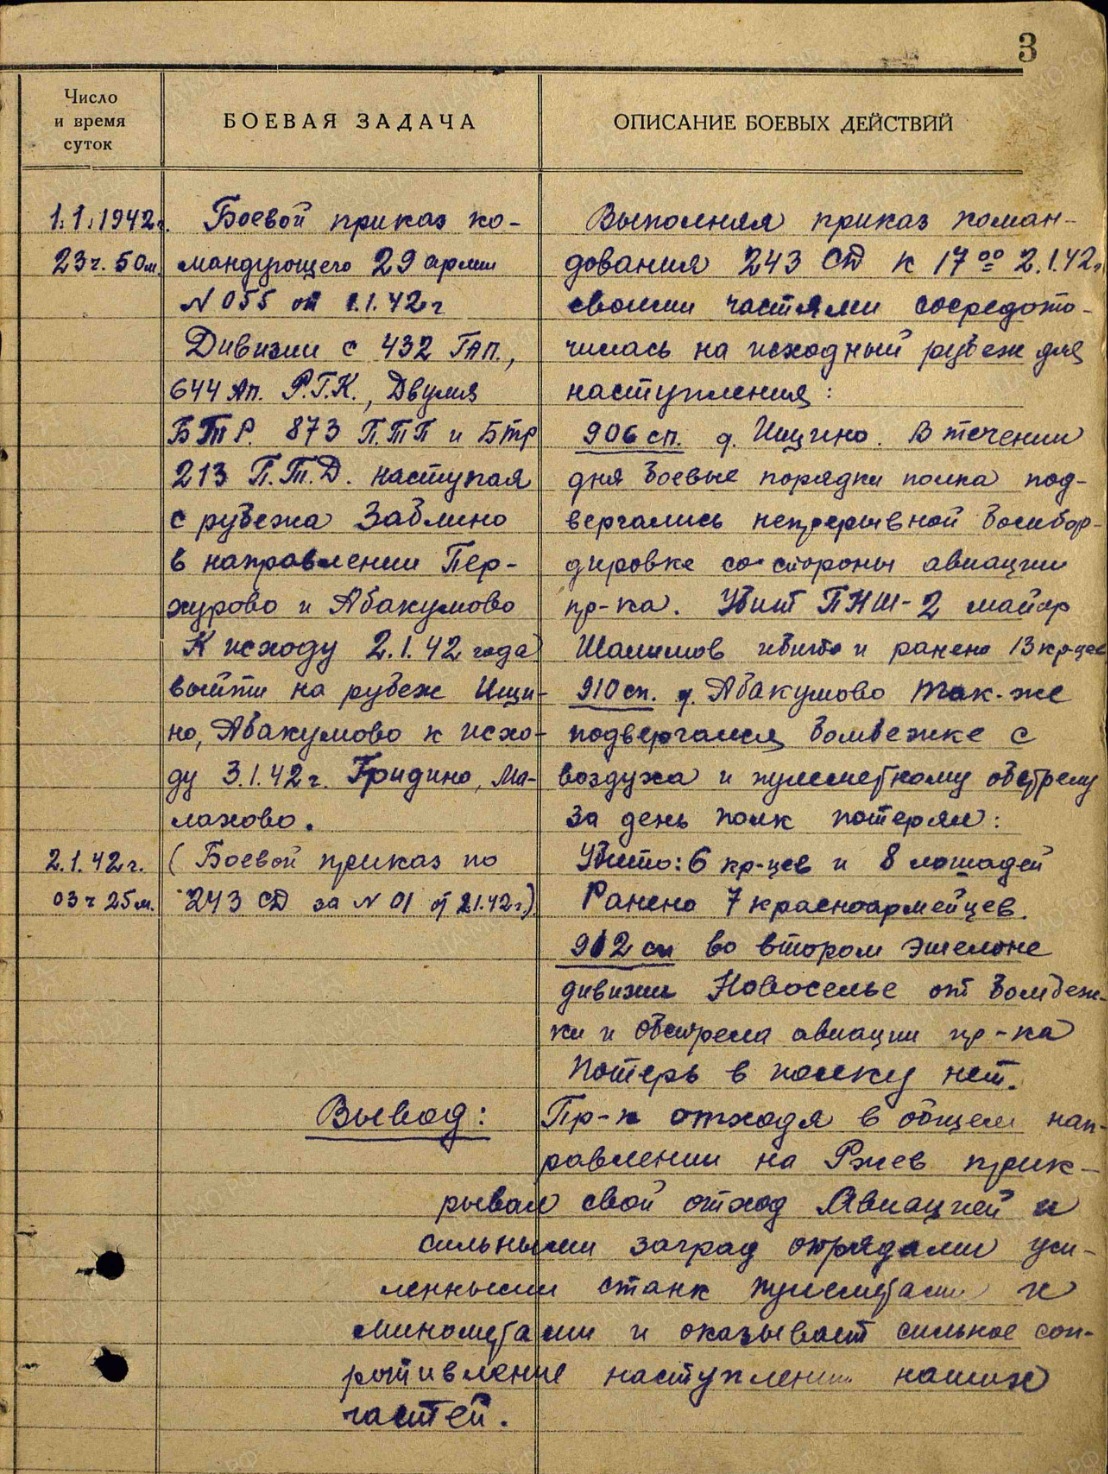 3
Число
и время
суток
БОЕВАЯ ЗАДАЧА
ОПИСАНИЕ БОЕВЫХ ДЕЙСТВИЙ
1.1.1942г.
23ч. 50м.
Боевой приказ ко-
мандующего 29 армии
N 055 от 1.1.42г
Дивизии с 432 ГАП.,
644 Ап. Р.Г.К., Двумя
БТР. 873 П.Т.П и Бтр
213 П.Т.Д. наступая
с рубежа Заблино
в направлении Пер-
хурово и Абакумово
К исходу 2.1.42 года
выйти на рубеж Ищи-
но, Абакумово к исхо-
ду 3.1.42г. Гридино, Ма-
лахово.
2.1.42г.
03ч 25м.
(Боевой приказ по
243 СД за N 01 от 2.1.42г.)
Выполняя приказ коман-
дования 243 СД к 17 00 2.1.42г
своими частями сосредото-
чилась на исходный рубеж для
наступления:
906 сп. д. Ищино. В течении
дня боевые порядки полка под-
вергались непрерывной бомбор-
дировке со стороны авиации
пр-ка. Убит ПНШ-2 майор
Шалимов убито и ранено 13 кр-цев
910 сп. д. Абакумово так-же
подвергался бомбежке с
воздуха и пулеметному обстрелу
за день полк потерял:
Убито: 6 кр-цев и 8 лошадей
Ранено 7 красноармейцев.
912 сп во втором эшелоне
дивизии Новоселье от бомбеж-
ки и обстрела авиации пр-ка
потерь в полку нет.
Вывод: Пр-к отходя в общем нап-
равлении на Ржев прик-
рывал свой отход Авиацией и
сильными заград отрядами уси-
ленными станк пулеметами и
минометами и оказывает сильное соп-
ротивление наступлению наших
частей.